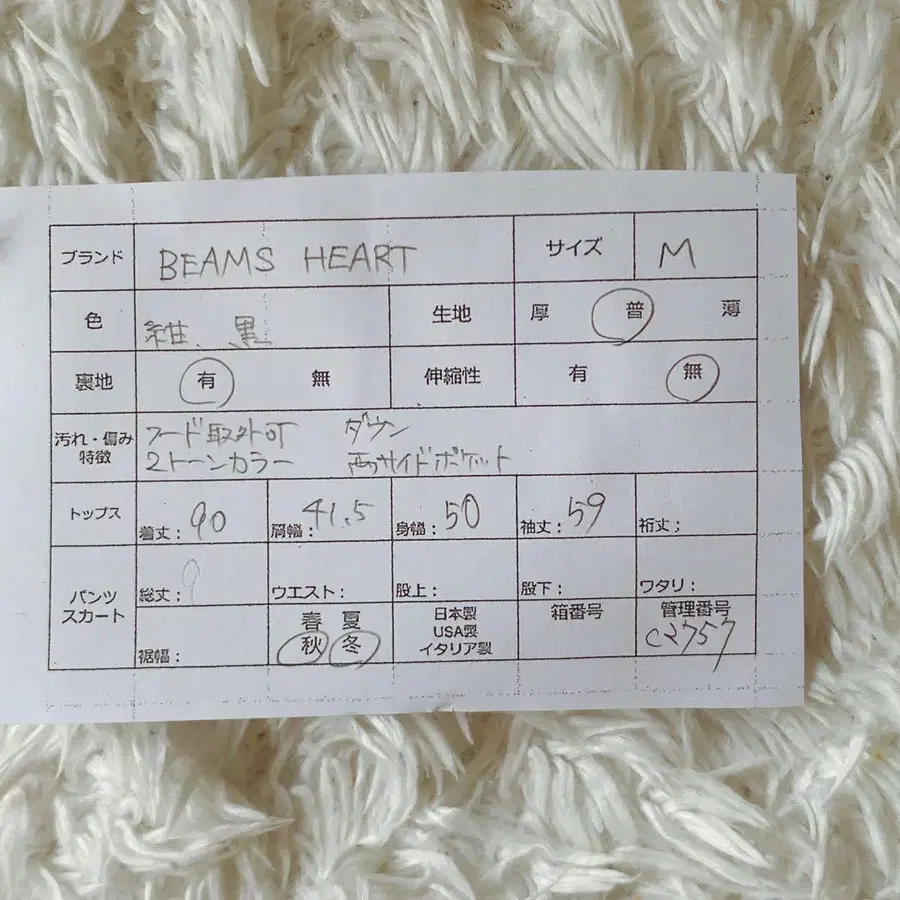 ブランド BEAMS HEART サイズ M
色 紺、黒 生地 厚 普 薄
裏地 有 無 伸縮性 有 無
汚れ・傷み フード取外可 ダウン
特徴 2トーンカラー 両サイドポケット
トップス 着丈：90 肩幅：41.5 身幅：50 袖丈：59 裄丈：
パンツ 総丈：9 ウエスト： 股上： 股下： ワタリ：
スカート 裾幅： 春 夏 日本製 箱番号 管理番号
秋 冬 USA製 C2757
イタリア製